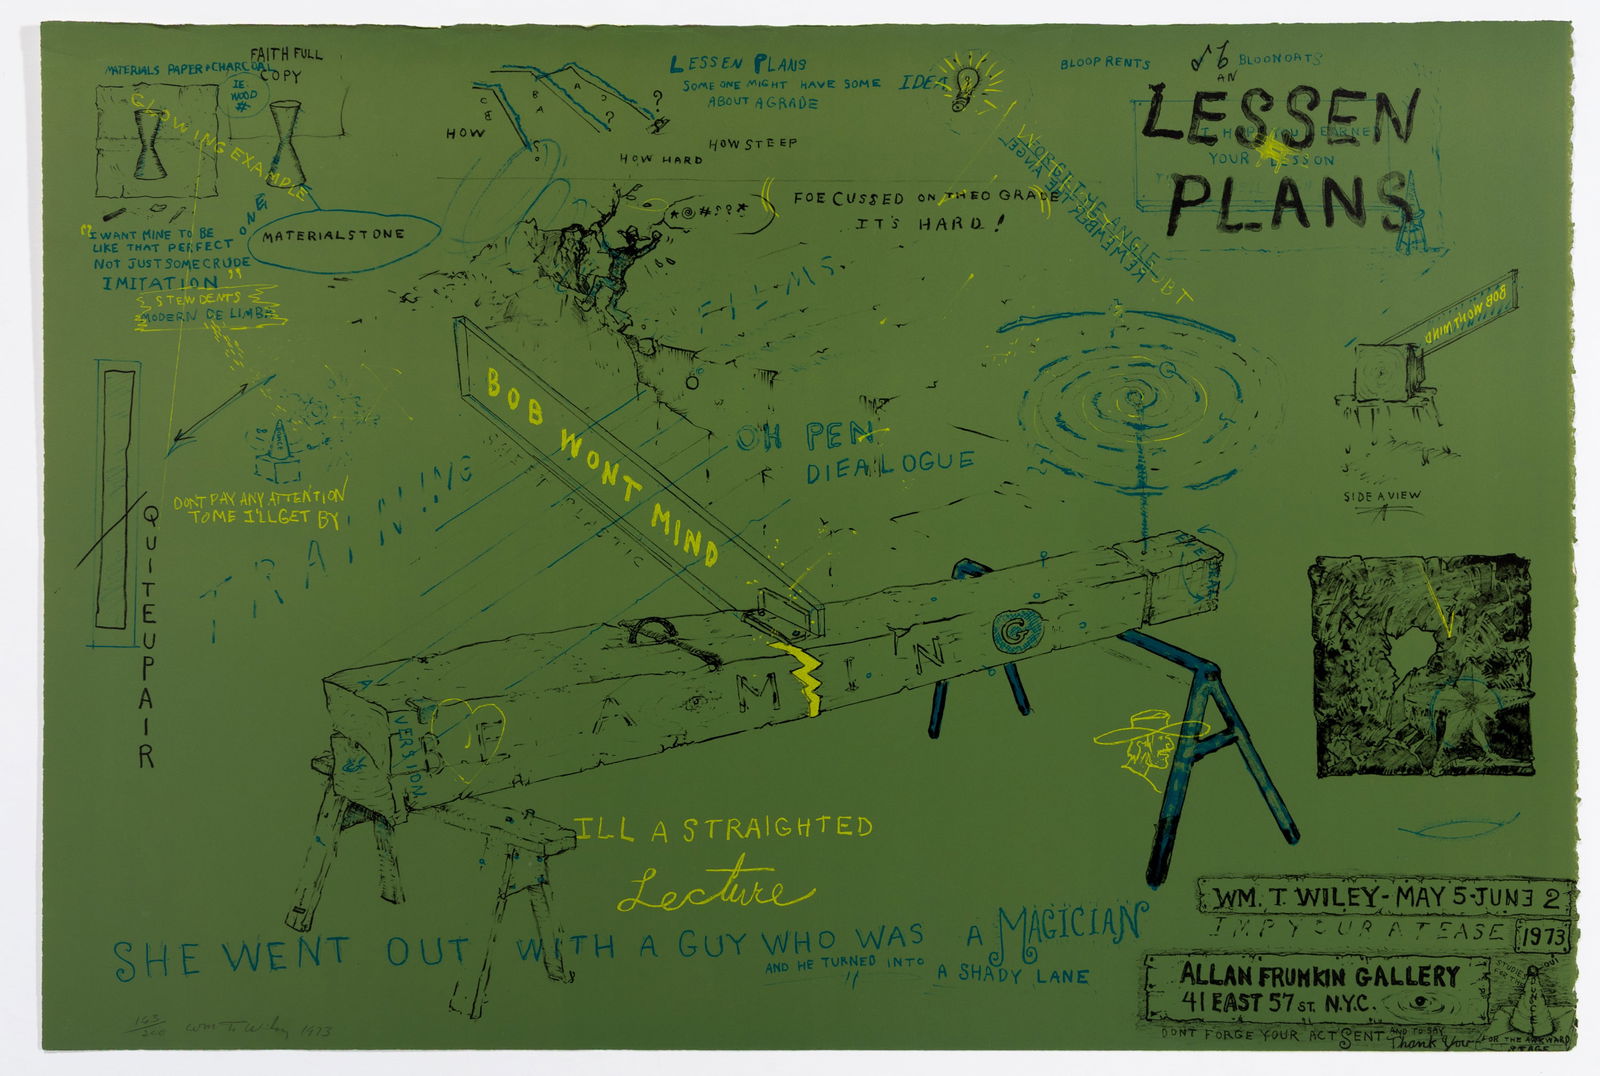 MATERIALS PAPER & CHARCOAL
FAITH FULL
COPY
IE.
WOOD
#
GLOWING EXAMPLE
ONE
MATERIALSTONE
"I WANT MINE TO BE
LIKE THAT PERFECT
NOT JUST SOME CRUDE
IMITATION"
STEWDENTS
MODERN DE LIMB
HOW
C
B
B
A
A
?
?
HOW HARD
HOW STEEP
LESSEN PLANS
SOME ONE MIGHT HAVE SOME IDEA
ABOUT A GRADE
*@#$?*
FOE CUSSED ON THEO GRADE
IT'S HARD!
BLOOP RENTS
AN
LESSEN
PLANS
I HOPE YOU LEARNED
YOUR LESSON
REMEMBER THE ANGEL
FILMS
BOB WONT MIND
BOB WONT MIND
SIDE A VIEW
OH PEN
DIEALOGUE
TRAINING
DONT PAY ANY ATTENTION
TO ME I'LL GET BY
QUITEUPAIR
VERSION
F A M I N G
ILL A STRAIGHTED
Lecture
SHE WENT OUT WITH A GUY WHO WAS A MAGICIAN
AND HE TURNED INTO A SHADY LANE
WM. T. WILEY - MAY 5 - JUNE 2
IMPYOURATEASE
1973
ALLAN FRUMKIN GALLERY
41 EAST 57 ST. N.Y.C.
DONT FORGE YOUR ACT SENT AND TO SAY Thank You
STUDIES
FOR THE
OUT
DUNCE
FOR THE AWKWARD
STAGE
Wm T. Wiley 1973